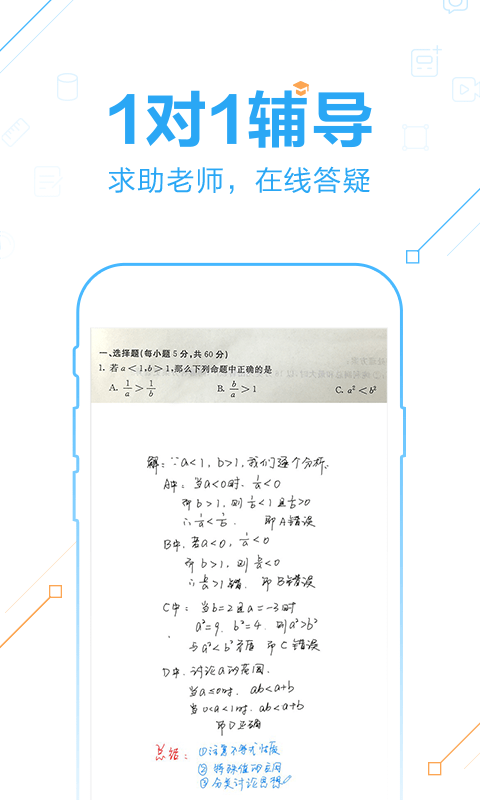 1对1辅导
求助老师，在线答疑
一、选择题(每小题5分,共60分)
1. 若a<1,b>1,那么下列命题中正确的是
A. 1/a>1/b B. b/a>1 C. a²<b²
解：∵a<1，b>1，我们逐个分析。
A中：当a<0时，1/a<0
而b>1，则1/b<1且1/b>0
∴1/a<1/b． 即A错误
B中，若a<0，1/a<0
而b>1，则b/a<0
∴b/a>1错．即B错误
C中：当b=2且a=-3时
a²=9，b²=4．则a²>b²
与a²<b²矛盾 即C错误
D中．讨论a的范围．
当a≤0时．ab<a+b
当0<a<1时．ab<a+b
即D正确
总结：①注意不等式性质
②特殊值的应用
③分类讨论思想